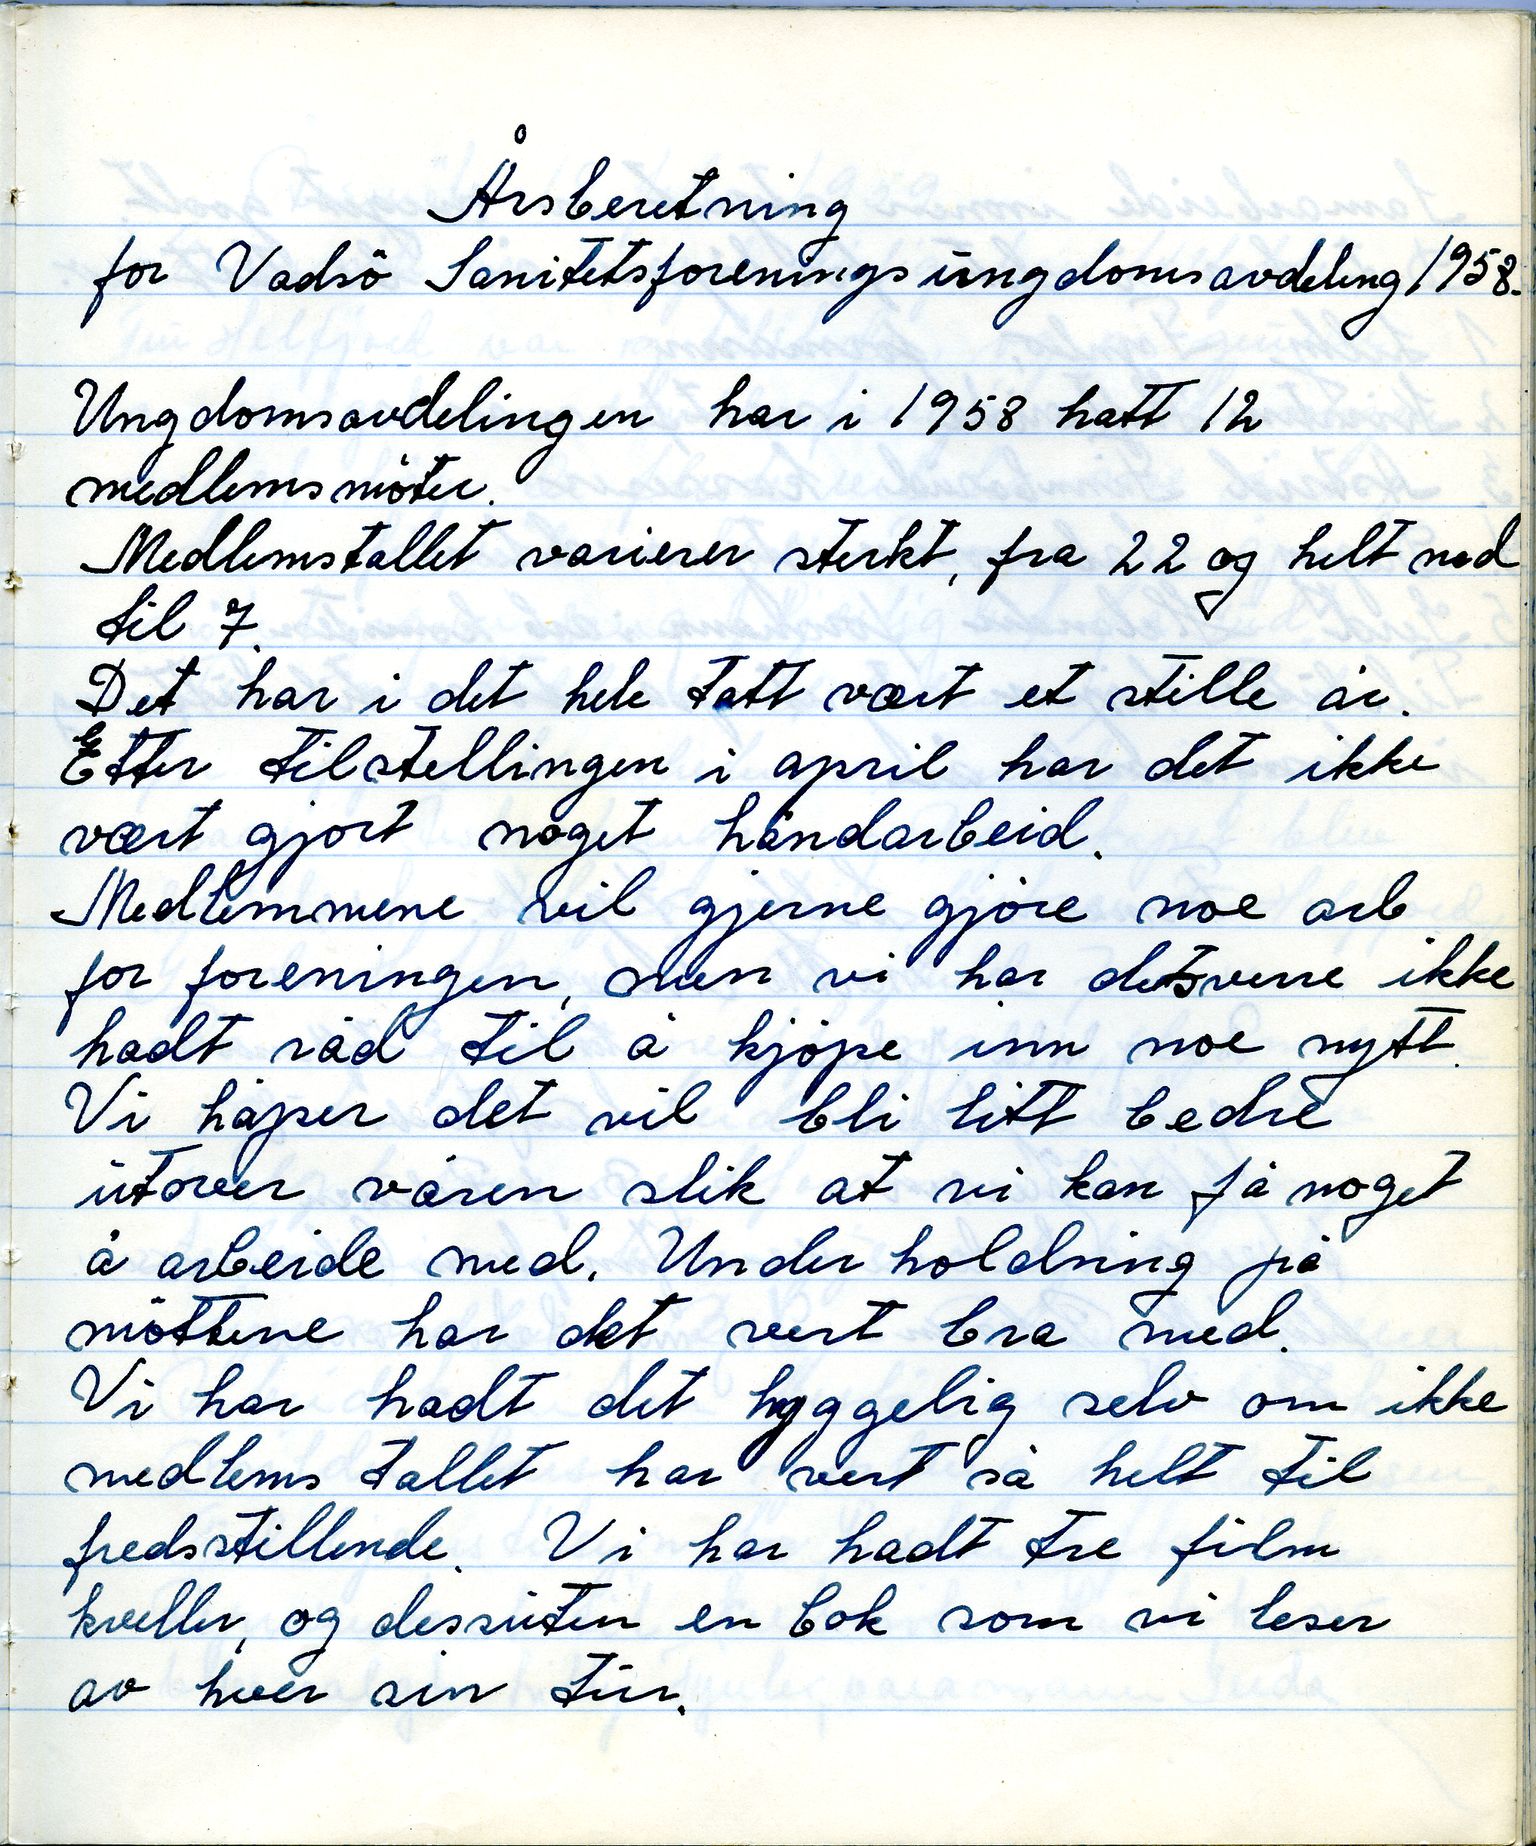 Årsberetning
for Vadsö Sanitetsforenings ungdomsavdeling 1958.
Ungdomsavdelingen har i 1958 hatt 12
medlemsmöter.
Medlemstallet varierer sterkt, fra 22 og helt ned
til 7.
Det har i det hele tatt vært et stille år.
Etter tilstellingen i april har det ikke
vært gjort noget håndarbeid.
Medlemmene vil gjerne gjöre noe arb
for foreningen, men vi har detsverre ikke
hadt råd til å kjöpe inn noe nytt.
Vi håper det vil bli litt bedre
utover våren slik at vi kan få noget
å arbeide med. Underholdning på
möttene har det vert bra med.
Vi har hadt det hyggelig selv om ikke
medlems tallet har vert så helt til
fredsstillende. Vi har hadt tre film
kveller, og dessuten en bok som vi leser
av hver sin tur.